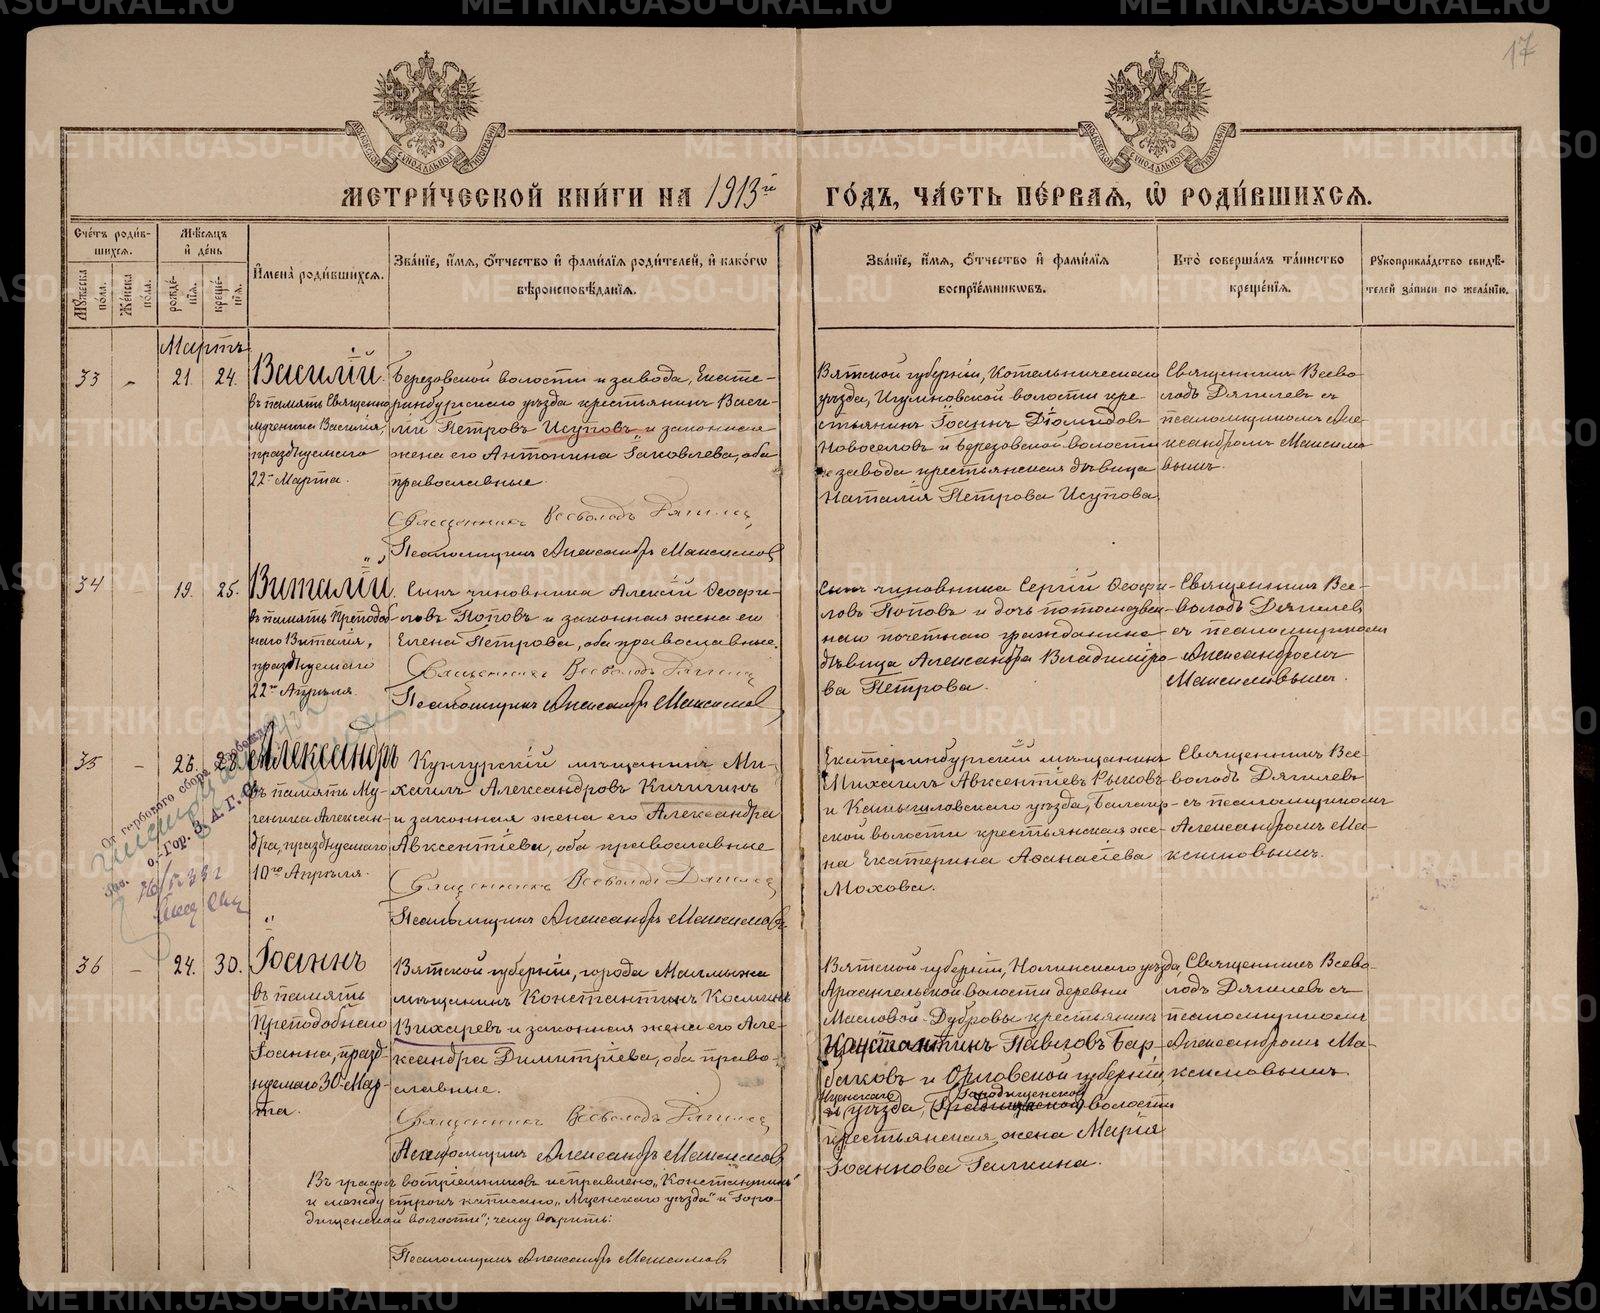 17
МЕТРИ́ЧЕСКОЙ КНИ́ГИ НА 1913й ГО́ДЪ, ЧА́СТЬ ПЕ́РВАЯ, Ѡ РОДИ́ВШИХСЯ.
Сче́тъ роди́в-
шихся.
Мꙋ́жеска по́ла.
Же́нска по́ла.
Мѣ́сяцъ
и де́нь
рожде́-
нїя.
креще́-
нїя.
И҆мена̀ роди́вшихся.
Зва́нїе, и҆́мя, ѻ҆́тчество и҆ фами́лїя роди́телей, и҆ како́гѡ
вѣроисповѣ́данїя.
Зва́нїе, и҆́мя, ѻ҆́тчество и҆ фами́лїя
воспрїе́мникѡвъ.
Кто̀ соверша́лъ та́инство
креще́нїя.
Рꙋкоприкла́дство свидѣ́-
телей за́писи по жела́нїю.
Мартъ
33 - 21. 24.
Василій.
въ память Священно
мученика Василія,
празднуемаго
22го Марта.
Березовской волости и завода, Екате-
ринбургскаго уѣзда крестьянинъ Васи-
лій Петровъ Исуповъ и законная
жена его Антонина Іаковлева, оба
православные.
Священникъ Всеволодъ Дягилев
Псаломщикъ Александръ Максимов
Вятской губерніи, Котельническаго
уѣзда, Игумновской волости кре-
стьянинъ Іоаннъ Діомидовъ
Новоселовъ и Березовской волости
и завода крестьянская дѣвица
Наталія Петрова Исупова.
Священникъ Всево
лодъ Дягилевъ съ
псаломщикомъ Але-
ксандромъ Максимо
вымъ.
34 - 19. 25.
Виталій.
въ память Преподоб
наго Виталія,
празднуемаго
22го Апрѣля
Сынъ чиновника Алексій Ѳеофи-
ловъ Поповъ и законная жена его
Елена Петрова, оба православные.
Священникъ Всеволодъ Дягилев
Псаломщикъ Александръ Максимов
Сынъ чиновника Сергій Ѳеофи-
ловъ Поповъ и дочь потомствен-
наго почетнаго гражданина
дѣвица Александра Владиміро-
ва Петрова.
Священникъ Все-
володъ Дягилевъ
съ псаломщикомъ
Александромъ
Максимовымъ.
35 - 26. 28.
Александръ
въ память Му-
ченика Алексан-
дра, празднуемаго
10го Апрѣля.
Кунгурскій мѣщанинъ Ми-
хаилъ Александровъ Кичигинъ
и законная жена его Александра
Авксентіева, оба православные
Священникъ Всеволодъ Дягилев
Псаломщикъ Александръ Максимовъ.
Екатеринбургскій мѣщанинъ
Михаилъ Авксентіевъ Рыковъ
и Камышловскаго уѣзда, Балаир-
ской волости крестьянская же-
на Екатерина Аѳанасіева
Мохова.
Священникъ Все-
володъ Дягилевъ
съ псаломщикомъ
Александромъ Ма-
ксимовымъ.
От гербового сбора
Гор. З.А.Г.С.
36 - 24. 30.
Іоаннъ
въ память
Преподобнаго
Іоанна, празд-
нуемаго 30 Мар-
та.
Вятской губерніи, города Малмыжа
мѣщанинъ Константинъ Косминъ
Вихаревъ и законная жена его Але-
ксандра Димитріева, оба право-
славные.
Священникъ Всеволодъ Дягилев
Псаломщикъ Александръ Максимов
Вятской губерніи, Нолинскаго уѣзда,
Архангельской волости деревни
Масловой-Дубровы крестьянинъ
Константинъ Павловъ Бар-
баковъ и Орловской губерніи,
Мценскаго Городищенской
уѣзда, волости
крестьянская жена Марія
Іоаннова Галкина.
Священникъ Всево-
лодъ Дягилевъ съ
псаломщикомъ
Александромъ Ма-
ксимовымъ.
Въ графѣ воспріемниковъ исправлено „Константинъ"
и между строкъ написано „Мценскаго уѣзда" и „Горо-
дищенской волости"; чему вѣрить:
Псаломщикъ Александръ Максимовъ
METRIKI.GASO-URAL.RU